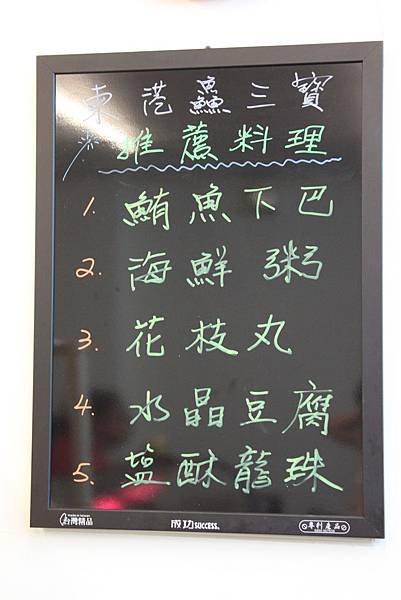 東港鱻三寶
※推薦料理
1. 鮪魚下巴
2. 海鮮粥
3. 花枝丸
4. 水晶豆腐
5. 塩酥龍珠
MADE IN TAIWAN
台灣精品 成功 SUCCESS. 專利產品